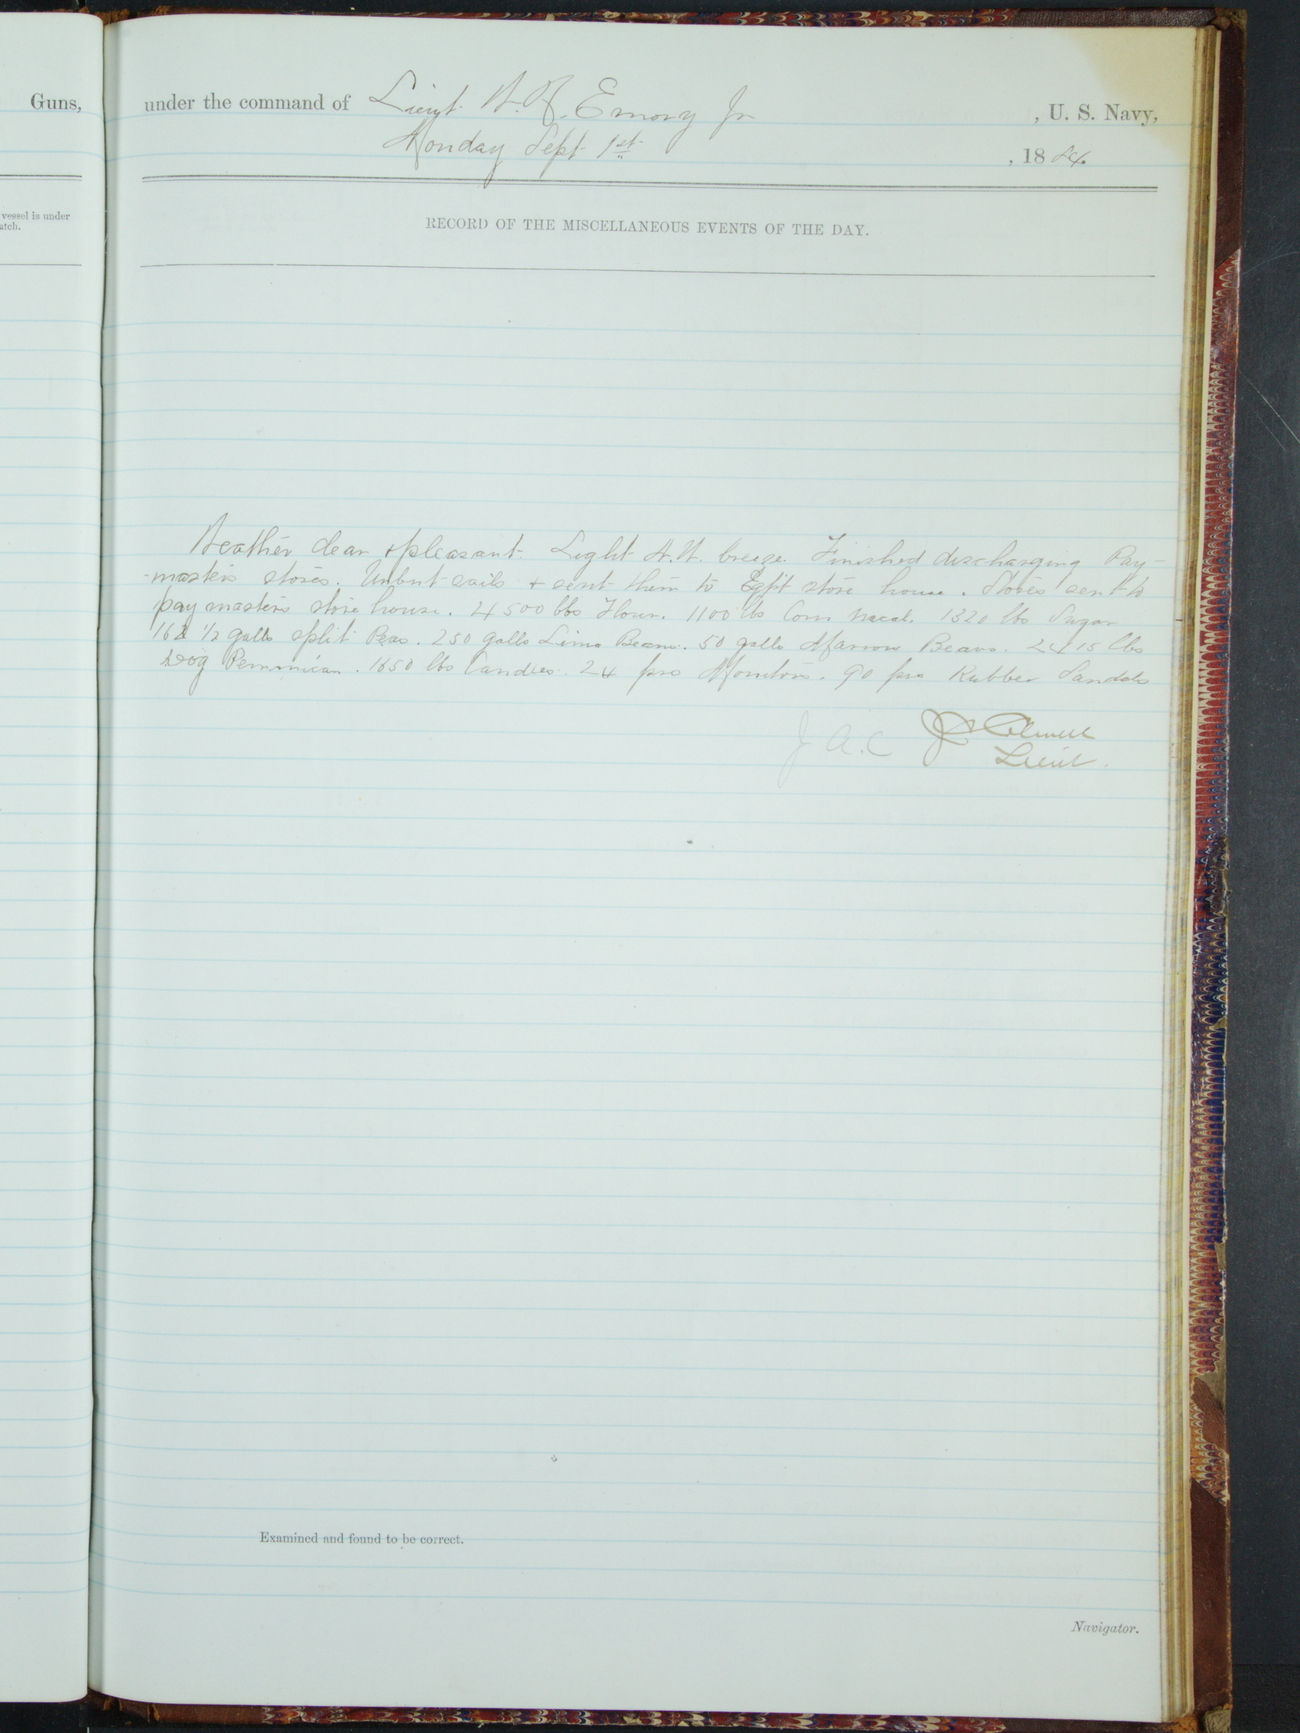 Guns,
under the command of Lieut. W. H. Emory Jr , U. S. Navy,
Monday Sept 1st , 1884
vessel is under
atch.
RECORD OF THE MISCELLANEOUS EVENTS OF THE DAY.
Weather clear & pleasant. Light N.W. breeze. Finished discharging Pay-
-masters stores. Unbent sails & sent them to Eqpt store house. Stores sent to
paymasters store house. 4500 lbs Flour. 1100 lbs Corn meal. 1320 lbs Sugar
1/2 galls split Peas. 250 galls Lima Beans. 50 galls Marrow Beans. 2415 lbs
Dog Pemmican. 1650 lbs Candles. 24 prs Monitors. 90 prs Rubber Sandals
J. A. C
Lieut.
Examined and found to be correct.
Navigator.